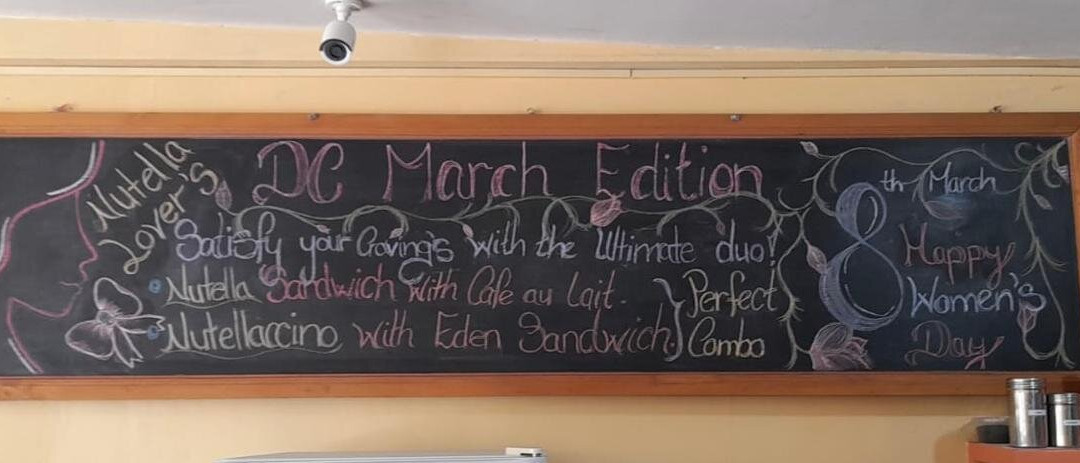 Nutella
Lover's
DC March Edition
Satisfy your Craving's with the Ultimate duo!
Nutella Sandwich with Cafe au Lait.
Nutellaccino with Eden Sandwich.
Perfect
Combo
8th March
Happy
Women's
Day